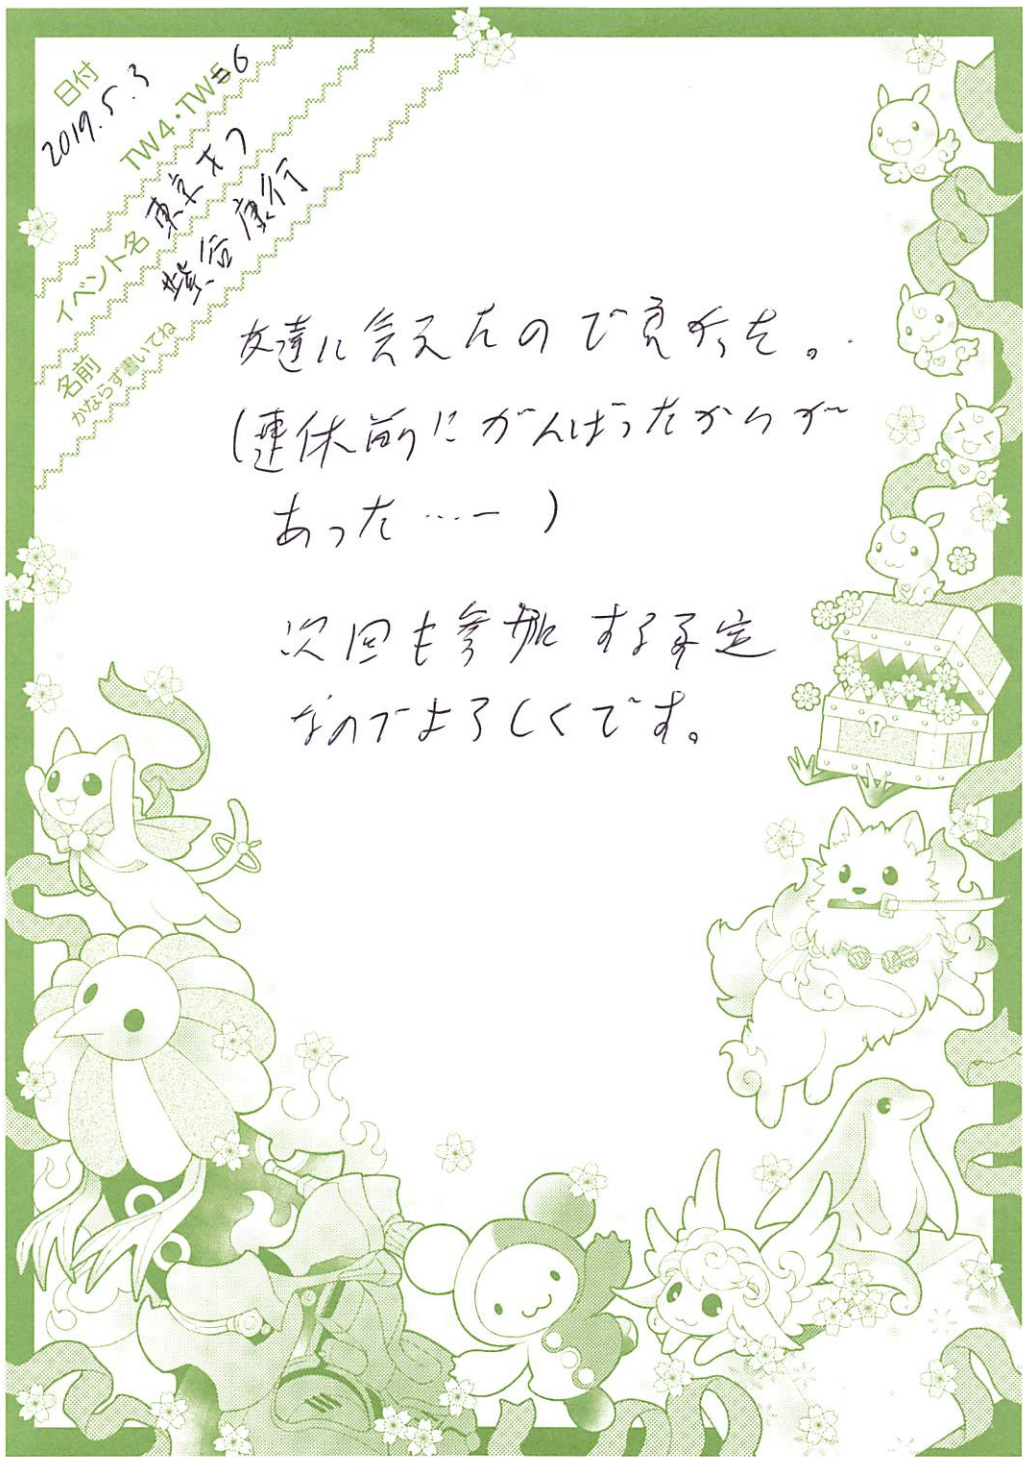 日付
2019.5.3
TW4・TW5 6
イベント名 東京オフ
名前 康行
かならず書いてね
友達に会えたので良かった。
(連休前にがんばったからが
あった……ー)
次回も参加する予定
なのでよろしくです。